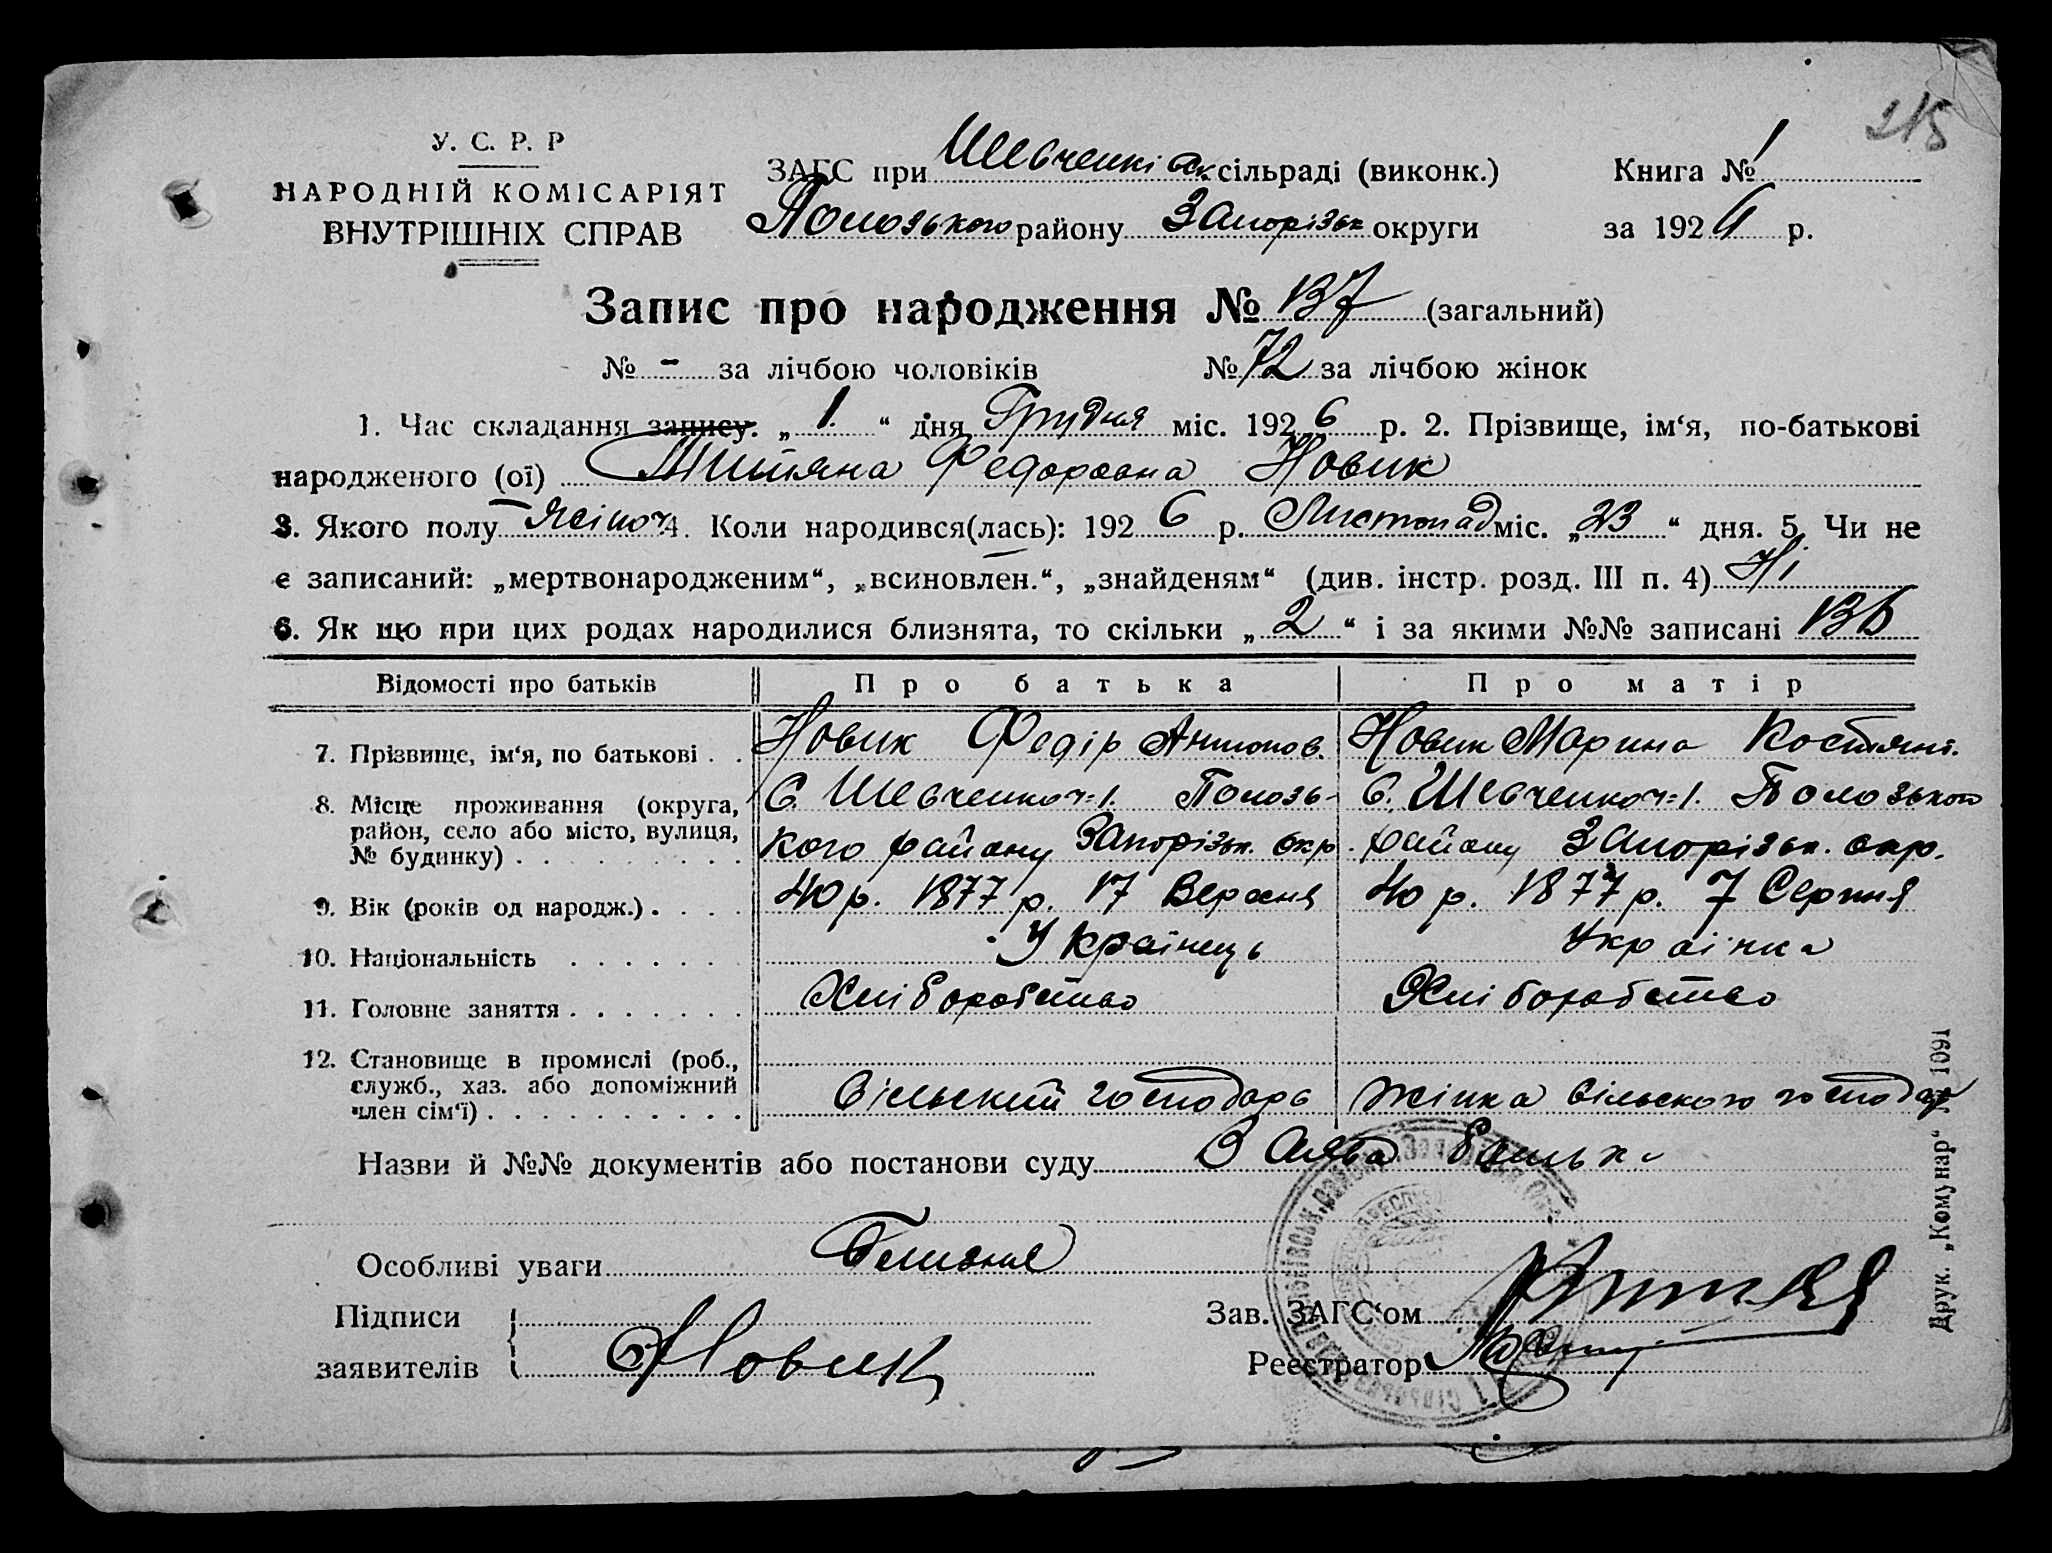 215
У. С. Р. Р
НАРОДНІЙ КОМІСАРІЯТ
ВНУТРІШНІХ СПРАВ
ЗАГС при Шевченків сільраді (виконк.) Книга № 1
Полозького району Запорізьк округи за 192 р.
Запис про народження № 137 (загальний)
№ - за лічбою чоловіків № 72 за лічбою жінок
1. Час складання запису. „ 1. “ дня Грудня міс. 192 6 р. 2. Прізвище, ім‘я, по-батькові
народженого (ої) Федоровна Новик
3. Якого полу Жіноч 4. Коли народився(лась): 192 6 р. Листопад міс. „ 23 “ дня. 5. Чи не
є записаний: „мертвонародженим“, „всиновлен.“, „знайденям“ (див. інстр. розд. III п. 4) Ні
6. Як що при цих родах народилися близнята, то скільки „ 2 “ і за якими №№ записані
Відомості про батьків Про батька Про матір
7. Прізвище, ім‘я, по батькові . . Новик Федір Антонов. Новик Марина Костянт.
8. Місце проживання (округа, район, село або місто, вулиця, № будинку) . . . . . . . . . С. Шевченкоч=1. Полозь-
кого району Запорізьк. окр. С. Шевченкоч=1. Полозького
району Запорізьк. окр.
9. Вік (років од народж.) . . . . 40 р. 1877 р. 17 Вересня 40 р. 1877 р. 7 Серпня
10. Національність . . . . . . Українець Українка
11. Головне заняття . . . . . . . Хліборобство Хліборобство
12. Становище в промислі (роб., служб., хаз. або допоміжний член сім‘ї) . . . . . . . . . . Сільський господарь Жінка сільского господар
Назви й №№ документів або постанови суду Заява батька
Особливі уваги
Підписи
заявителів Новик
Зав. ЗАГС‘ом
Реєстратор
Друк. „Комунар“ № 1091